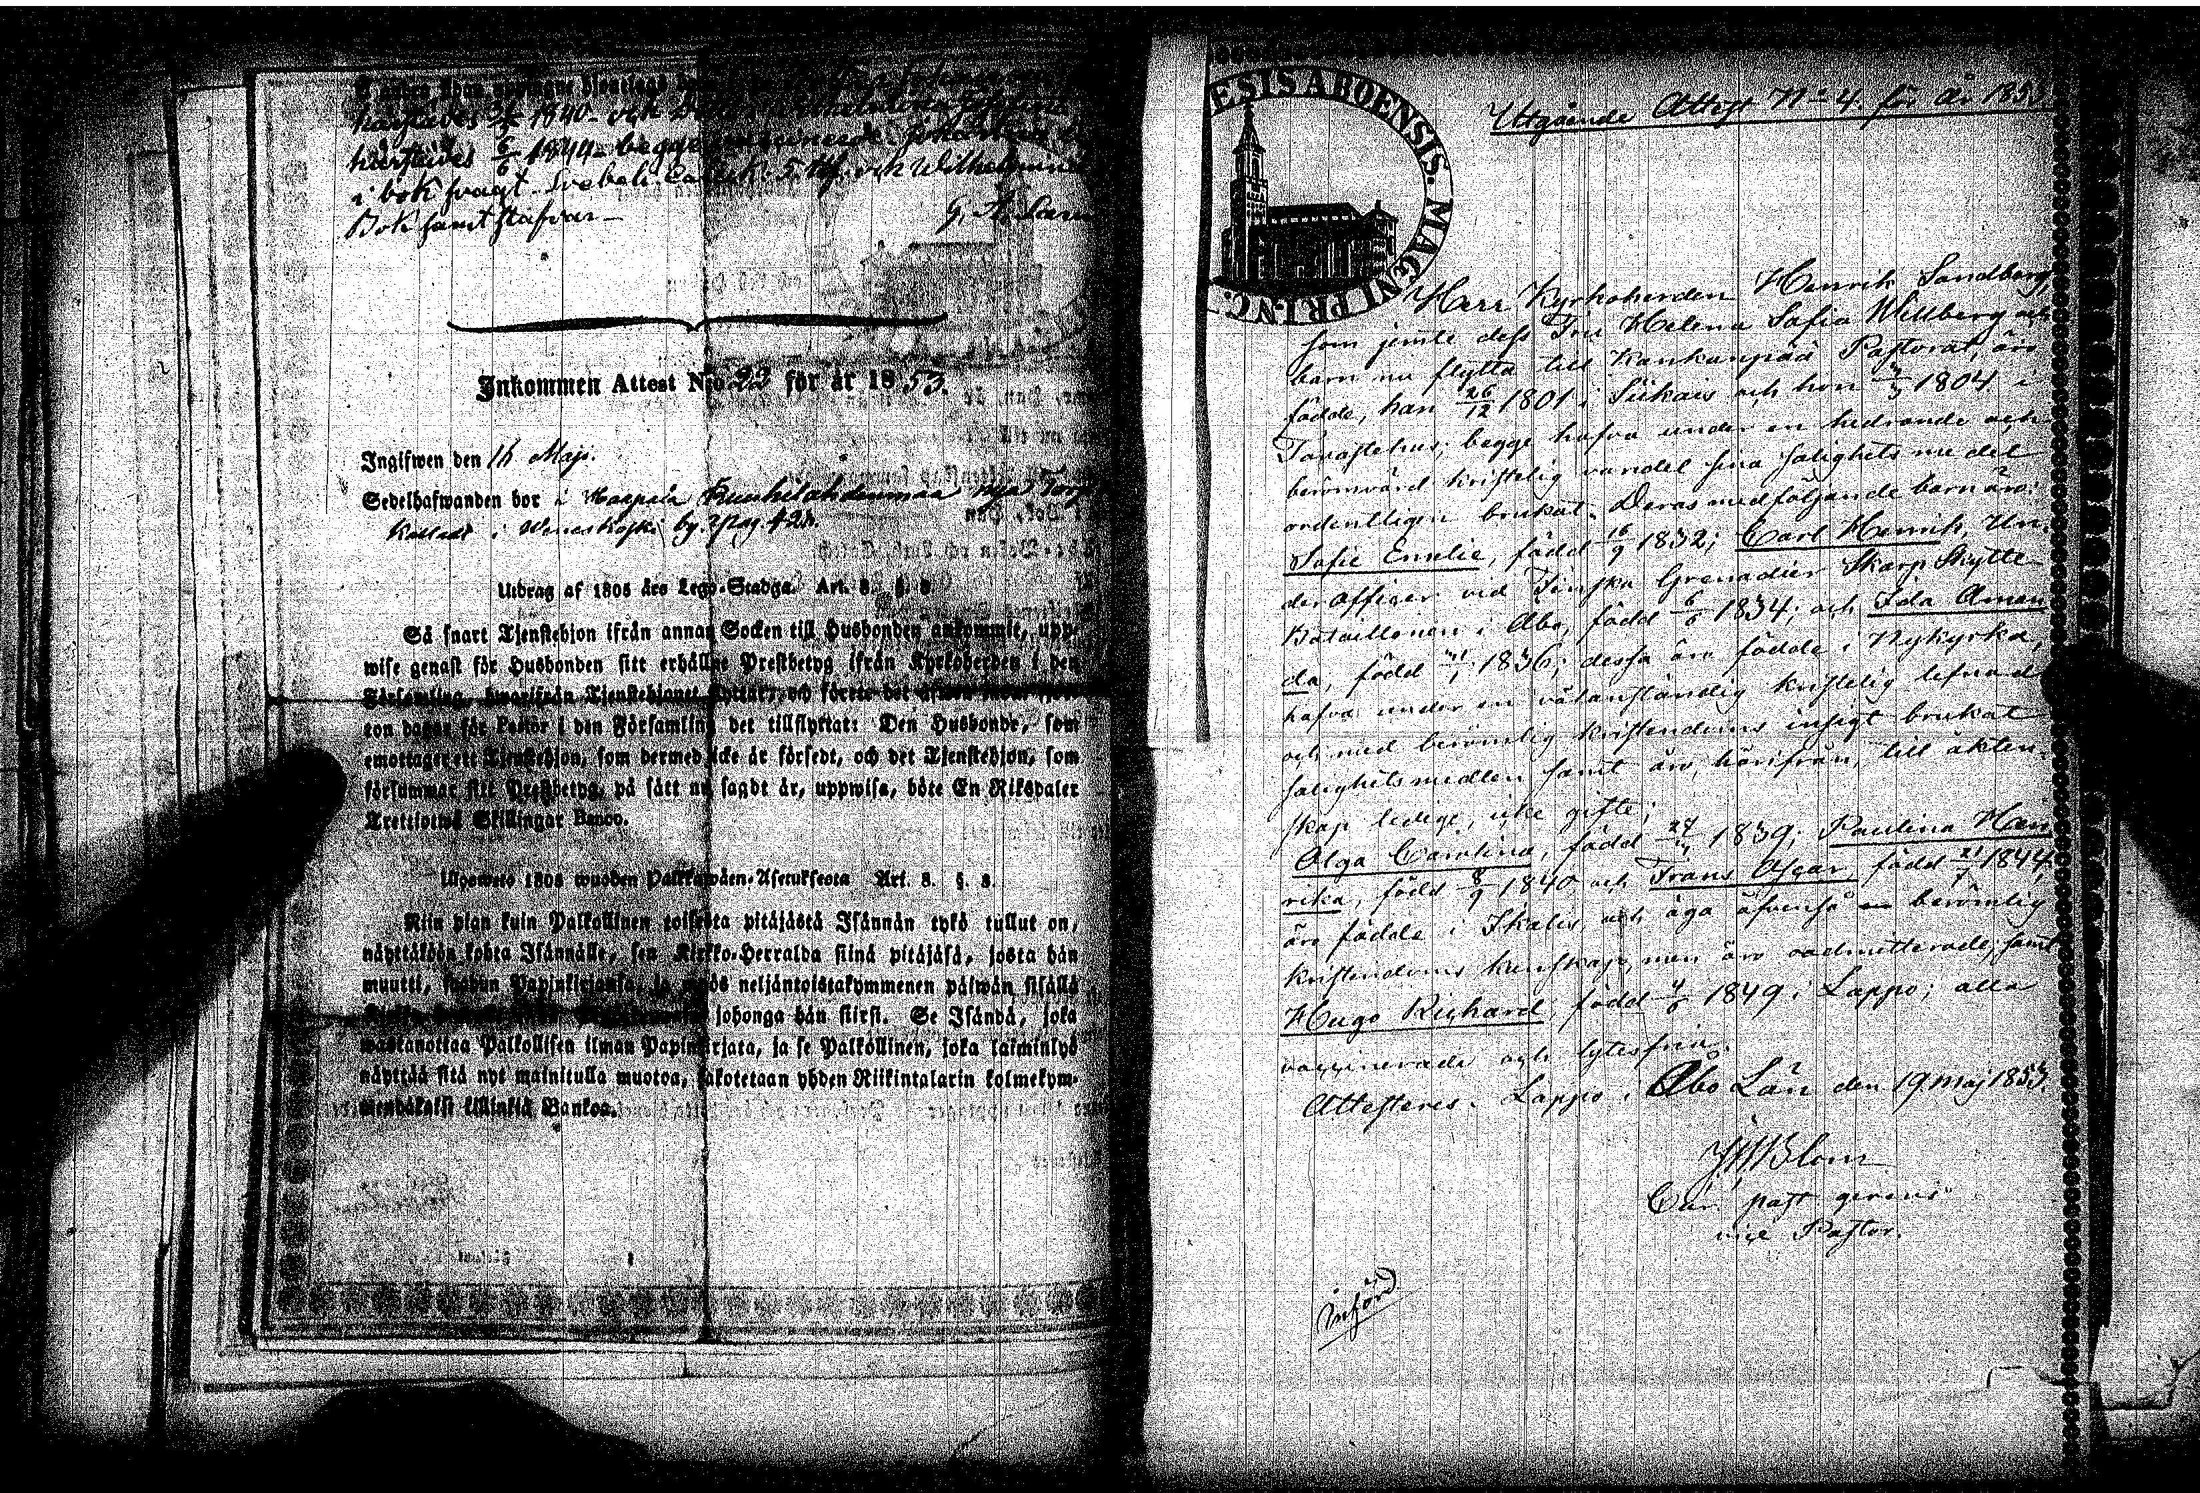 härstädes 1840 och
härstädes 6/6 1844 begge
i bok svagt. Svebeli Catech. 5. Hf. och Wilhelmina
Bok samt stafvar
Inkommen Attest N:o 22 för år 1853.
Ingifwen den 16 Maji.
Sedelhafwanden bor i nya Torp
by. pag 428.
Utdrag af 1805 års Lego-Stadga. Art. 8. §. 8.
Så snart Tjenstehjon ifrån annan Socken till Husbonden ankommit, upp-
wise genast för Husbonden sitt erhållne Prestbetyg ifrån Kyrkoherden i den
Församling, hwarifrån Tjenstehjonet flyttat, och förete det
ton dagar för Pastor i den Församling det tillflyttat: Den Husbonde, som
emottager ett Tjenstehjon, som dermed icke är försedt, och det Tjenstehjon, som
försummar sitt Prestbetyg, på sätt nu sagdt är, uppwisa, böte En Riksdaler
Trettiotwå Skillingar Banco.
Ulosweto 1805 wuoden Palkkawäen-Asetuksesta Art. 8. §. 8.
Niin pian kuin Palkollinen toisesta pitäjästä Isännän tykö tullut on,
näyttäköön kohta Isännälle, sen Kirkko-Herralda siinä pitäjäsä, josta hän
muutti, saadun Papinkirjansa, ja myös neljäntoistakymmenen päiwän sisällä
johonga hän siirsi. Se Isändä, joka
wastanottaa Palkollisen ilman Papinkirjata, ja se Palkollinen, joka laiminlyö
näyttää sitä nyt mainitulla muotoa, sakotetaan yhden Riikintalarin kolmekym-
mendäkaksi killinkiä Bankoa.
ESIS ABOENSIS. MAGNI PRINC.
Utgående Attest N:o 4. för år 1853
Herr Kyrkoherden Henrik Sandberg,
som jemte dess Fru Helena Sofia Willberg och
barn nu flytta till Kankanpää Pastorat, äro
födde, han 26/12 1801 i Siikais och hon 1804 i
Tavastehus; begge hafva under en hedrande och
berömvärd kristelig vandel sina salighets medel
ordentligen brukat. Deras medföljande barn äro:
Sofie Emelie, född 16/9 1832; Carl Henrik, Un-
derofficer vid Finska Grenadier Skarp Skytte
Bataillonen i Åbo, född 6/6 1834; och Ida Aman
da, född 1836; dessa äro födde i Nykyrka,
hafva under en välanständig kristelig lefnad
och med berömlig kristendoms insigt brukat
salighetsmedlen samt äro, härifrån, till äkten-
skap ledige, icke gifte;
Olga Carolina, född 1839; Paulina Hen
rika, född 8/9 1840 och Frans Oscar, född 21/7 1844,
äro födde i Ikalis, och äga äfvenså berömlig
kristendoms kunskap, men äro oadmitterade; samt
Hugo Richard, född 1849 i Lappo; alla
vaccinerade och lytesfria.
Attesteras. Lappo i Åbo Län den 19 maj 1853.
Blom
past gerens
vice Pastor.
införd